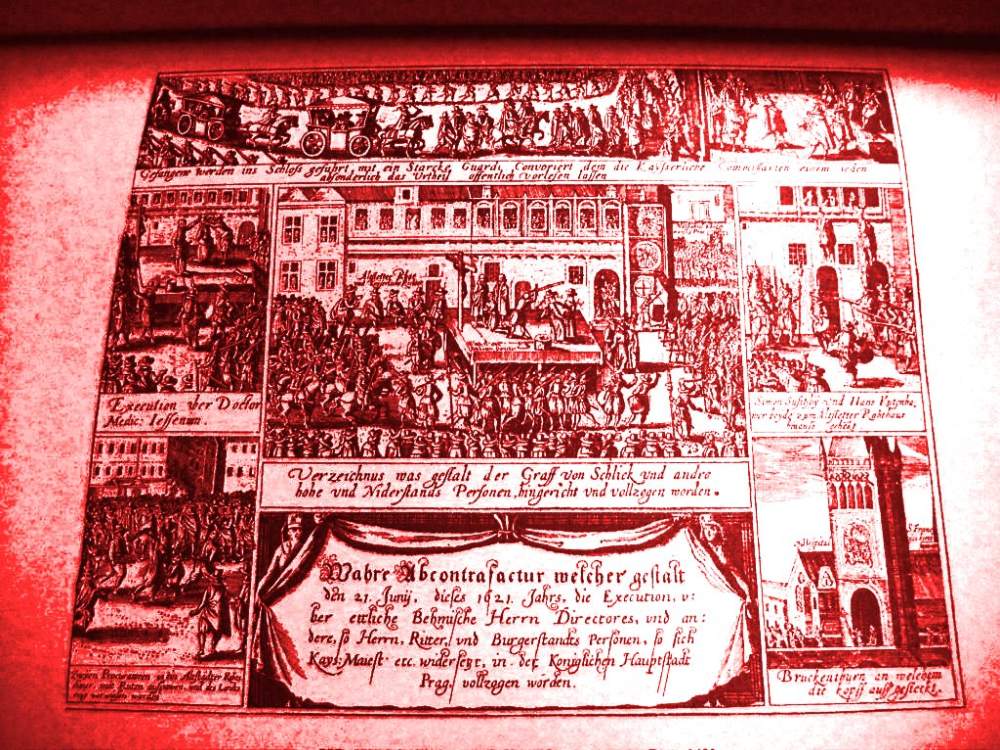 Gefangene werden ins Schloß gefuhrt mit ein Starcke Guardi Convoriert dem die Kaÿserliche Commissarien einem ieden
absonderlich das Vrtheil offentlich vorlesen lassen
Altstetter Rhat
Execution der Doctor
Medic: Iessenum.
Simon Sußitzkÿ vnd Hans
beÿde zum Altstetter Rahthaus
Verzeichnus was gestalt der Graff von Schlick vnd andre
hohe vnd Niderstands Personen hingericht vnd vollzogen worden.
Wahre Abcontrafactur welcher gestalt
den 21. Junij, dieses 1621. Jahrs, die Execution, v:
ber ettliche Behmische Herrn Directores, vnd an:
dere, so Herrn, Ritter, vnd Burgerstandts Personen, so sich
Kaÿs: Maiest: etc. widersetzt, in der Königlichen Hauptstadt
Prag, vollzogen worden.
Hospital
mit Ruten
Bruckenthurn an welchem
die köpff auff gesteckt.